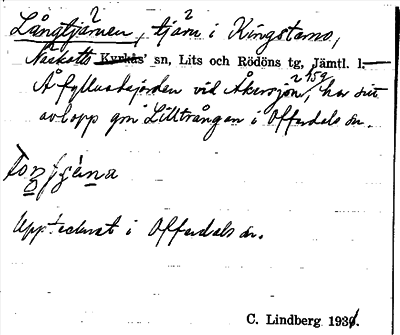 Långtjärnen, tjärn i Kingsta no,
Näskotts Kyrkås' sn, Lits och Rödöns tg, Jämtl. l.
Å fyllnadsjorden vid Åkersjön, har sitt
avlopp gm Lilltrången i Offerdals sn.
Upptecknat i Offerdals sn.
C. Lindberg 193